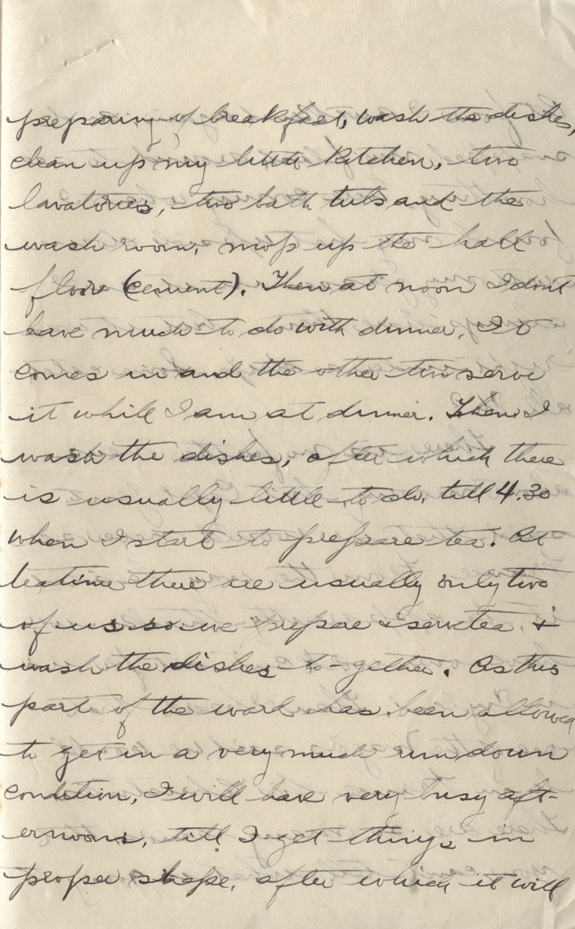 preparing of breakfast, wash the dishes,
clean up my little kitchen, two
lavatories, two bath tubs and the
wash room, mop up the hall
floor (cement). Then at noon I dont
have much to do with dinner. It
comes in and the other two serve
it while I am at dinner. Then I
wash the dishes, after which there
is usually little to do, till 4.30
when I start to prepare tea. At
teatime there are usually only two
of us so we prepare & serve tea, &
wash the dishes to-gether. As this
part of the ward has been allowed
to get in a very much run down
condition, I will have very busy aft-
ernoons, till I get things in
proper shape, after which it will